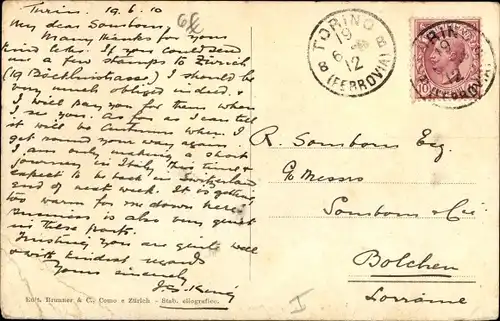 Turin. 19.6.10
My dear Somborn,
Many thanks for your
kind letter. If you could send
me a few stamps to Zürich
(19 Böcklinstrasse) I should be
very much obliged indeed. &
I will pay you for them when
I see you. As far as I can tell
it will be Autumn when I
get round your way again
I am only making a short
journey in Italy this time &
expect to be back in Switzerland
end of next week. It is getting
too warm for me down here.
Business is also very quiet
in these parts.
Trusting you are quite well
& with kindest regards
Yours sincerely
Edit. Brunner & C., Como e Zürich - Stab. eliografico.
TORINO
19
6
12
B B
(FERROVIA)
RIN
19
12
(FERROVIA)
10
R. Somborn Esq.
c/o Messrs
Somborn & Cie
Bolchen
Lorraine
I